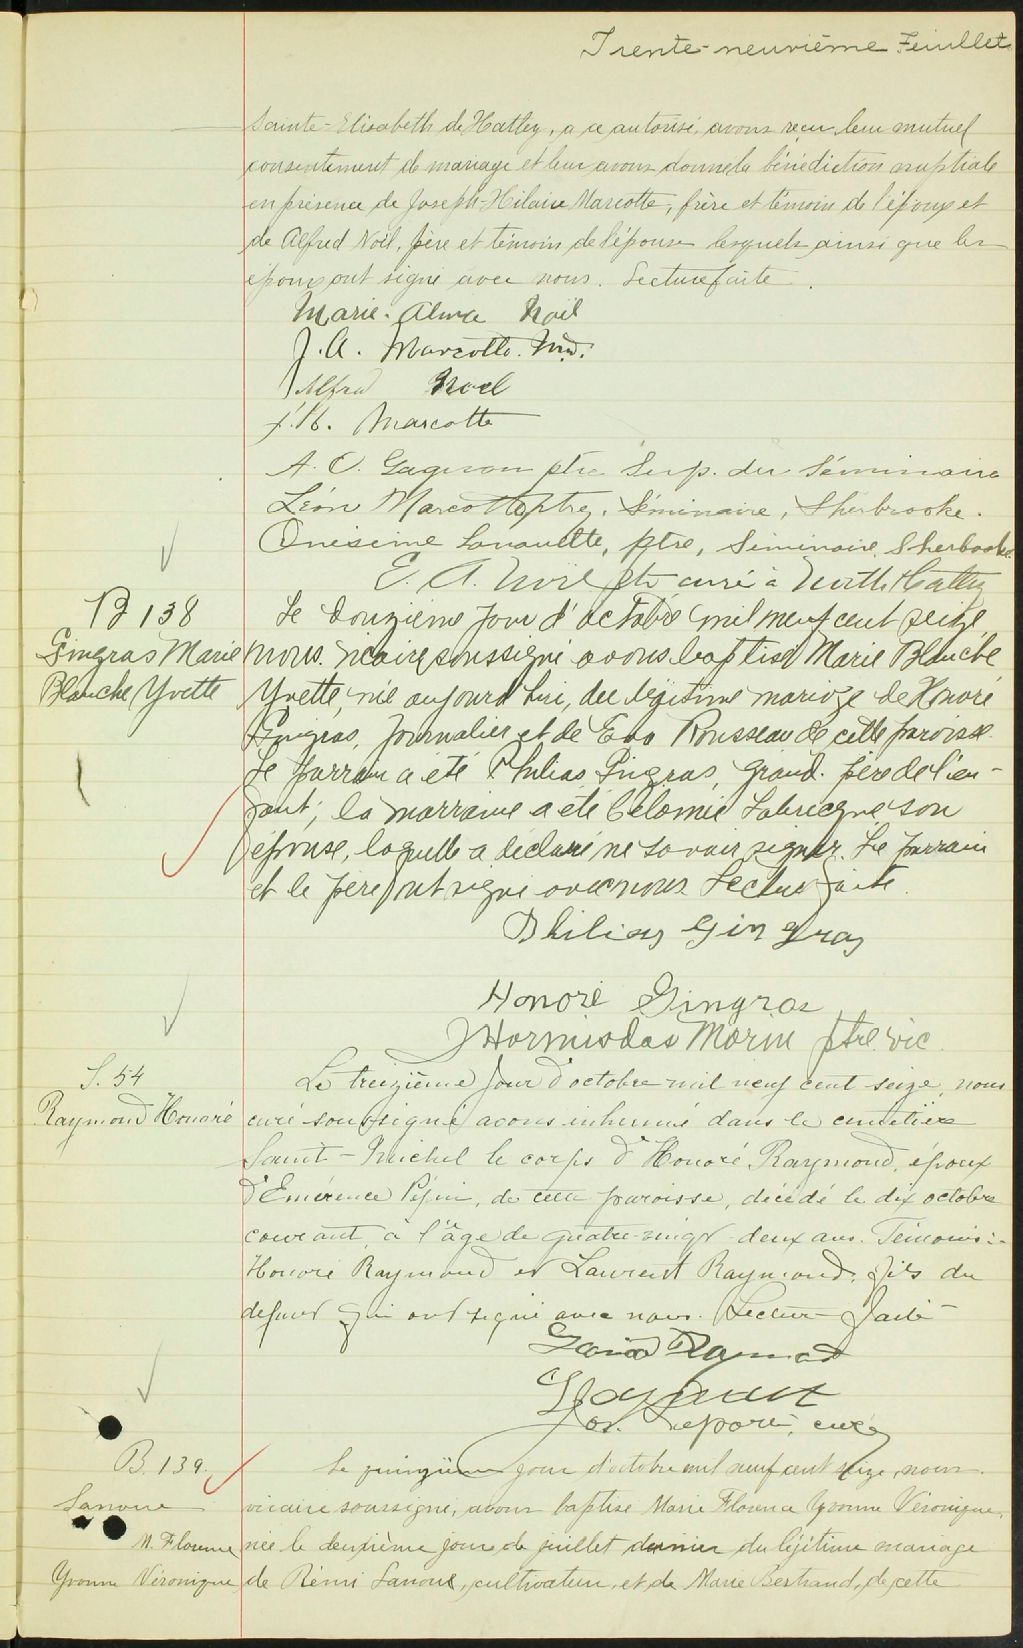 Trente-neuvième Feuillet
Sainte-Elisabeth de Hatley, a ce autorisé avons reçu leur mutuel
consentement de mariage et leur avons donné la bénédiction nuptiale
en présence de Joseph-Hilaire Marcotte, frère et témoin de l'époux et
de Alfred Noël, père et témoin de l'épouse lesquels ainsi que les
époux ont signé avec nous. Lecture faite.
Marie-Alma Noël
J. A. Marcotte. M.D.
Alfred Noel
J. H. Marcotte
A. O. Gagnon ptre Sup. du Séminaire
Léon Marcotte ptre, Séminaire, Sherbrooke.
Onésime Lanouette, ptre, Séminaire, Sherbrooke
E. A. Noël ptre curé à North Hatley
B 138
Gingras Marie
Blanche Yvette
Le douzième jour d'octobre mil neuf cent seize
nous vicaire soussigné avons baptisé Marie Blanche
Yvette, née aujourd'hui, du légitime mariage de Honoré
Gingras, journalier et de Eva Rousseau de cette paroisse.
Le parrain a été Philias Gingras, grand-père de l'en-
fant; la marraine a été Labrecque son
épouse, laquelle a déclaré ne savoir signer. Le parrain
et le père ont signé avec nous. Lecture faite.
Philias Gingras
Honoré Gingras
J Hormisdas Morin ptre vic.
S. 54
Raymond Honoré
Le treizième jour d'octobre mil neuf cent seize, nous
curé soussigné avons inhumé dans le cimetière
Saint-Michel le corps d'Honoré Raymond, époux
d'Emérence Pépin, de cette paroisse, décédé le dix octobre
courant, à l'âge de quatre-vingt-deux ans. Témoins:-
Honoré Raymond et Laurent Raymond, fils du
defunt qui ont signé avec nous. Lecture faite
Raymond
Jos. Laporte, curé
B. 139.
Lanoue
M. Florence
Yvonne Véronique
Le quinzième jour d'octobre mil neuf cent seize, nous
vicaire soussigné, avons baptisé Marie Florence Yvonne Véronique,
née le deuxième jour de juillet dernier du légitime mariage
de Rémi Lanoue, cultivateur, et de Marie Bertrand, de cette